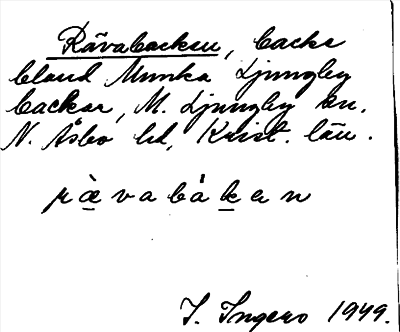 Rävabacken, backe
bland Munka Ljungby
backar, M. Ljungby sn.
N. Åsbo hd, Krist. län.
rævabákan
I. Ingers 1949.